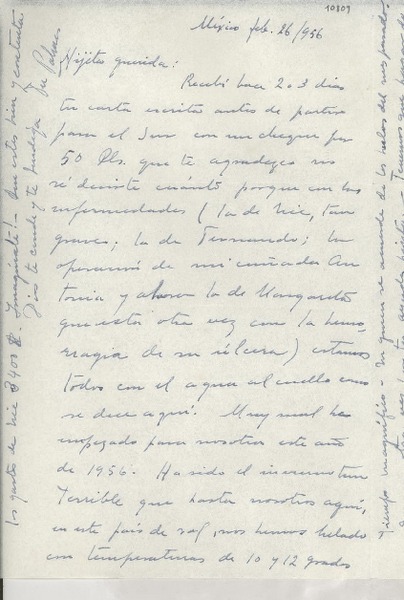 10809
México feb. 26/956
Hijita querida:
Recibí hace 2 o 3 dias
tu carta escrita antes de partir
para el Sur con un cheque por
50 Dls. que te agradezco no
sé decirte cuánto porque con las
enfermedades (la de Nic, tan
grave; la de Fernando; la
operación de mi cuñada An
tonia y ahora la de Margarita
que está otra vez con la hemo
rragia de su úlcera) estamos
todos con el agua al cuello como
se dice aquí. Muy mal ha
empezado para nosotros este año
de 1956. Ha sido el invierno tan
terrible que hasta nosotros aquí,
en este país de sol, nos hemos helado
con temperaturas de 10 y 12 grados
los gastos de Nic $400 Imagínate!
Dios te cuide y te bendiga
Tiempo magnífico